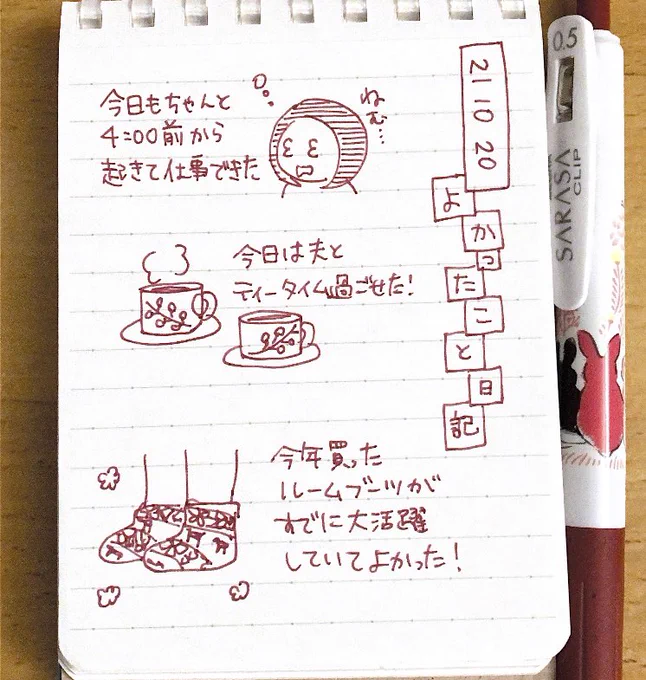 21 10 20
よかったこと日記
今日もちゃんと
4:00前から
起きて仕事できた
ねむ…
今日は夫と
ティータイム過ごせた!
今年買った
ルームブーツが
すでに大活躍
していてよかった!
0.5
SARASA
CLIP